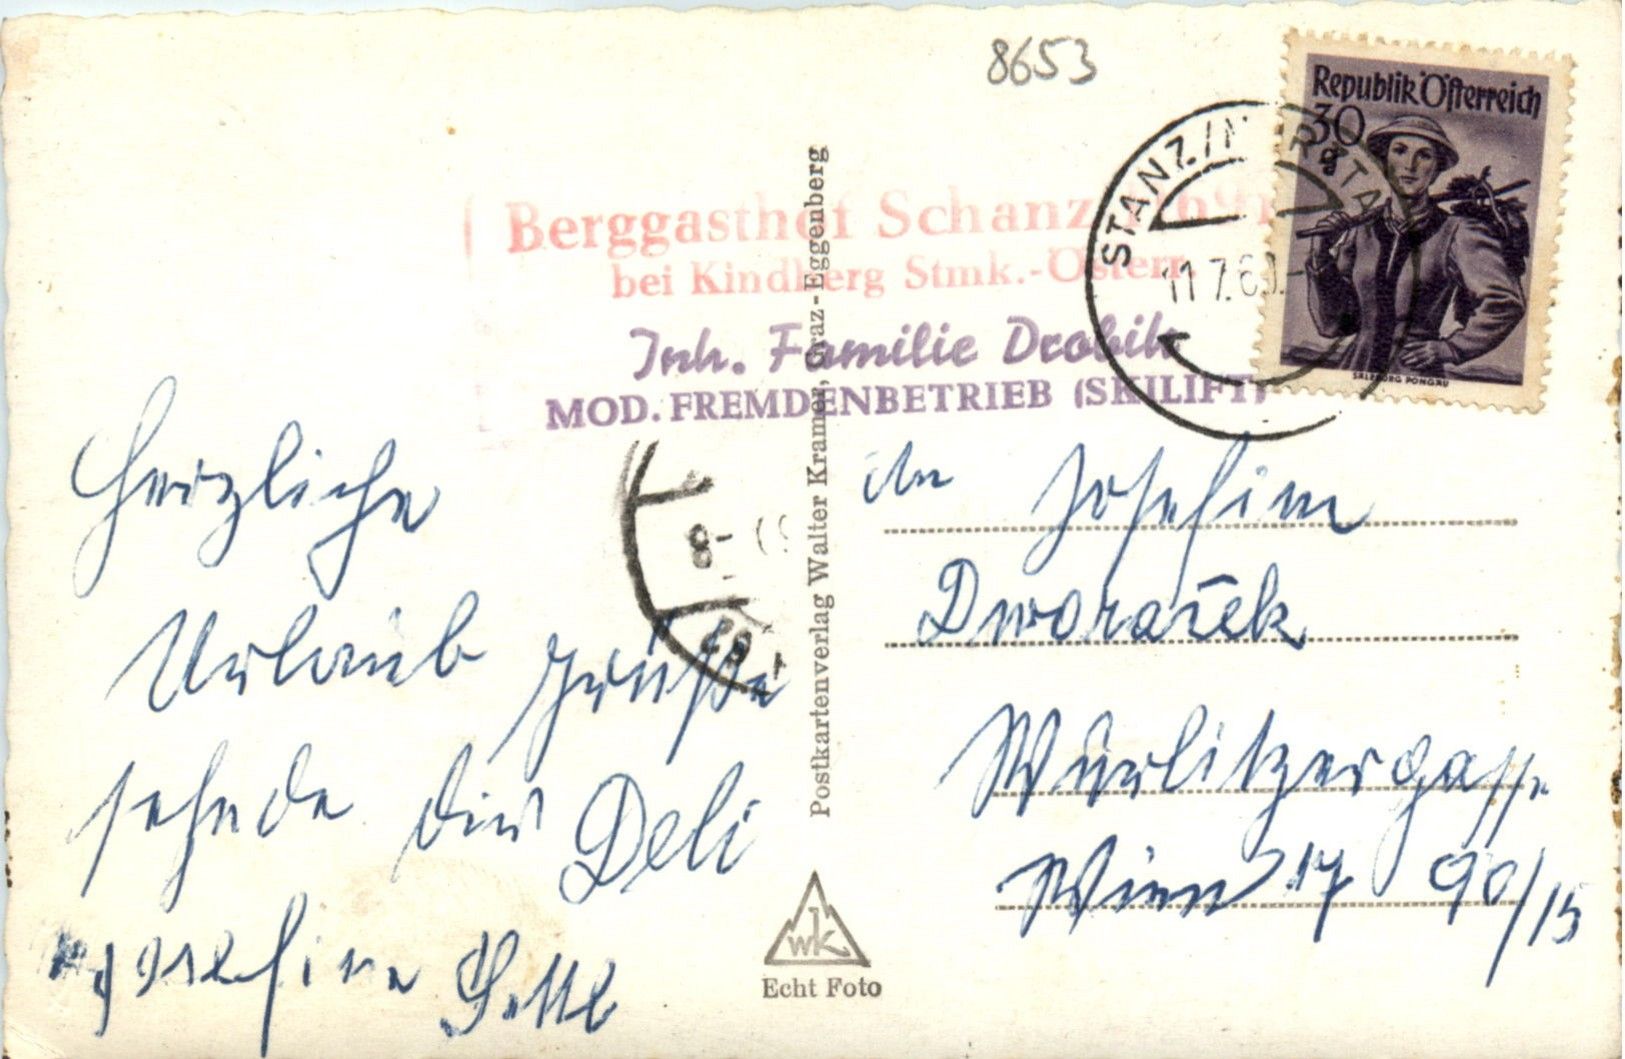 8653
Republik Österreich
30
g
SALZBURG PONGAU
STANZ / M RZTA
11.7.60.-
Berggasthof Schanz
bei Kindberg Stmk.-Österr.
Inh. Familie Drobilt
MOD. FREMDENBETRIEB (SKILIFT)
8-
Postkartenverlag Walter Kramer, Graz-Eggenberg
Herzliche
Urlaub grüße
sende dir Deli
Josefine
An Josefine
Dworaček
Würlitzergasse
Wien 17 90/15
wk
Echt Foto